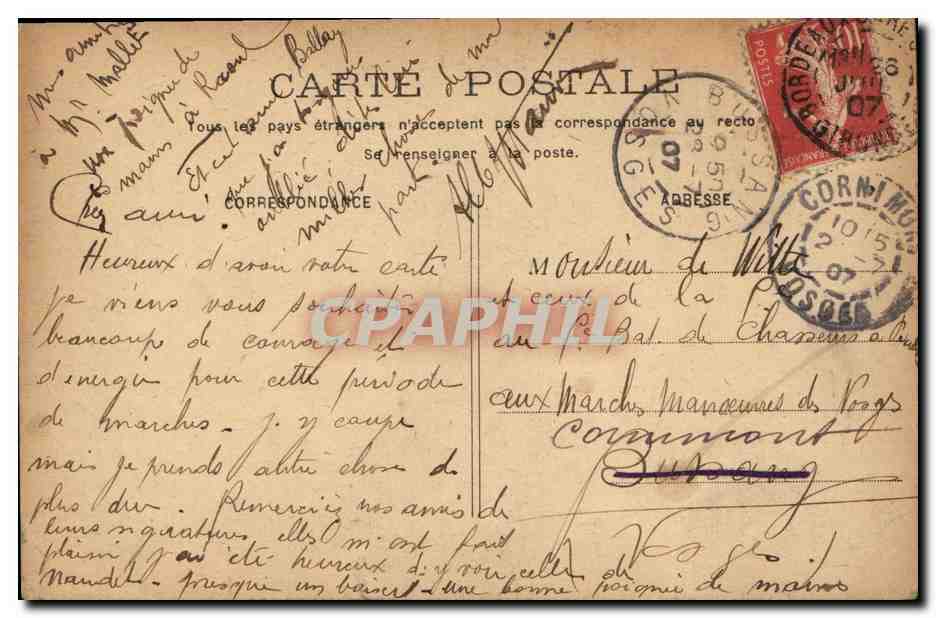 CARTE POSTALE
Tous les pays étrangers n'acceptent pas la correspondance au recto
Se renseigner à la poste.
CORRESPONDANCE
ADRESSE
POSTES
BORDEAUX
GIRONDE
07
BUSSANG
9 50
28 -7
07
VOSGES
CORNIMONT
10 15
2
07
VOSGES
CPAPHIL
Cher ami
Heureux d'avoir votre carte
je viens vous souhaiter
beaucoup de courage et
d'energie pour cette période
de marches - J'y coupe
mais je prends autre chose de
plus dur. Remerciez nos amis de
leurs signatures elles m'ont fait
plaisir j'ai été heureux d'y voir celle de
Nandel - presque un baiser - une bonne poignée de mains
à Mr Mallet
une poignée de
mains à Raoul
Et ce Ballay
que
oublié
part de ma
Monsieur de Witte
et ceux de la
au Bat. de Chasseurs à
aux Marches Manoeuvres des Vosges
Cornimont
Bussang
Vosges !